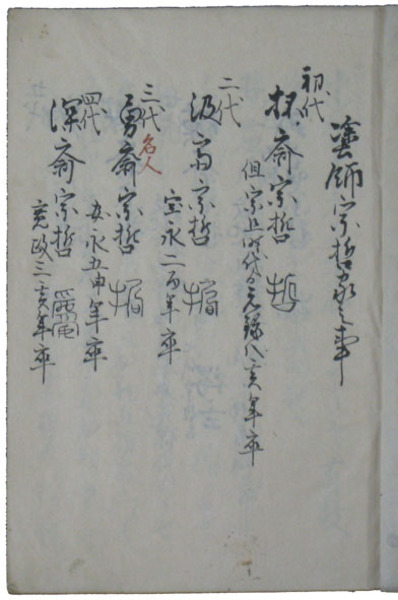 塗師宗哲家之事
初代
斎宗哲
但宗旦時代 元禄八亥年卒
二代
汲斎宗哲
宝永二酉年卒
三代 名人
勇斎宗哲
安永五申年卒
四代
深斎宗哲
寛政三亥年卒